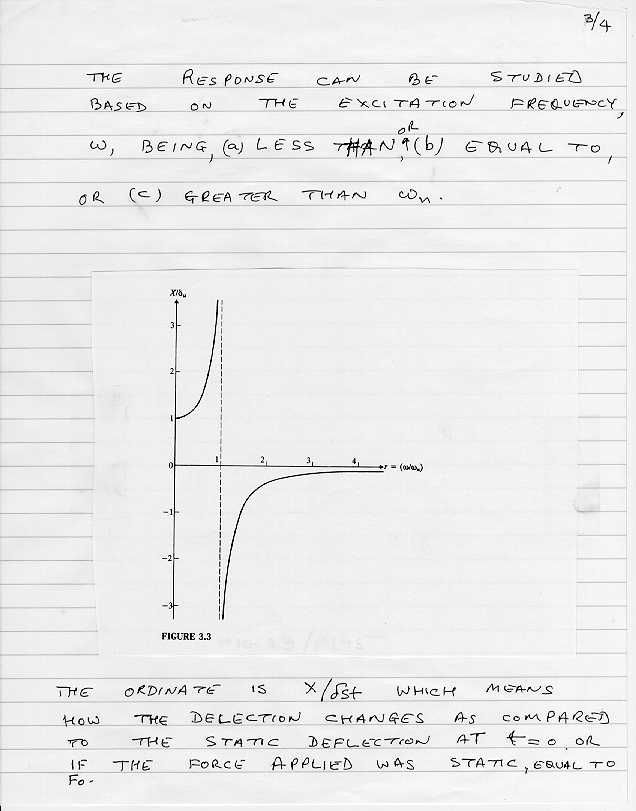 3/4
THE RESPONSE CAN BE STUDIED
BASED ON THE EXCITATION FREQUENCY,
ω, BEING, (a) LESS THAN, OR (b) EQUAL TO,
OR (c) GREATER THAN ωn.
X/δst
3
2
1
0
1 2 3 4 r = (ω/ωn)
-1
-2
-3
FIGURE 3.3
THE ORDINATE IS X/δst WHICH MEANS
HOW THE DELECTION CHANGES AS COMPARED
TO THE STATIC DEFLECTION AT t=0 OR
IF THE FORCE APPLIED WAS STATIC, EQUAL TO
Fo.